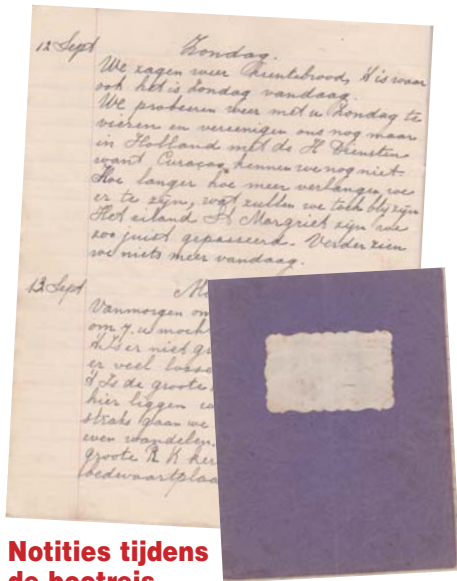 12 Sept
Zondag.
We zagen weer krentebrood, 't is waar
ook het is Zondag vandaag.
We probeeren weer met u Zondag te
vieren en vereenigen ons nog maar
in Holland met de H Diensten
want Curaçao kennen we nog niet.
Hoe langer hoe meer verlangen we
er te zijn, wat zullen we toch blij zijn
Het eiland St Margriet zijn we
zoo juist gepasseerd. Verder zien
we niets meer vandaag.
13 Sept
Ma
Vanmorgen om
om 7 u moch
't Is er niet g
er veel losse
't Is de groote
hier liggen
straks gaan we
even wandelen.
groote R K ker
bedevaartplaa
Notities tijdens
de bootreis